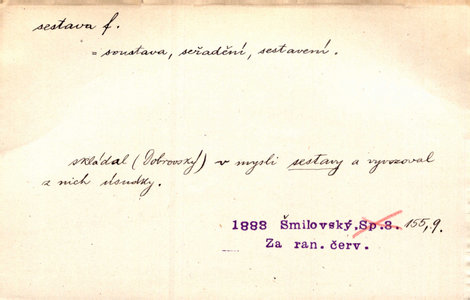 sestava f.
= soustava, seřadění, sestavení.
skládal (Dobrovský) v mysli sestavy a vyvozoval
z nich úsudky.
1883 Šmilovský, Sp.8. 155,9.
Za ran. červ.